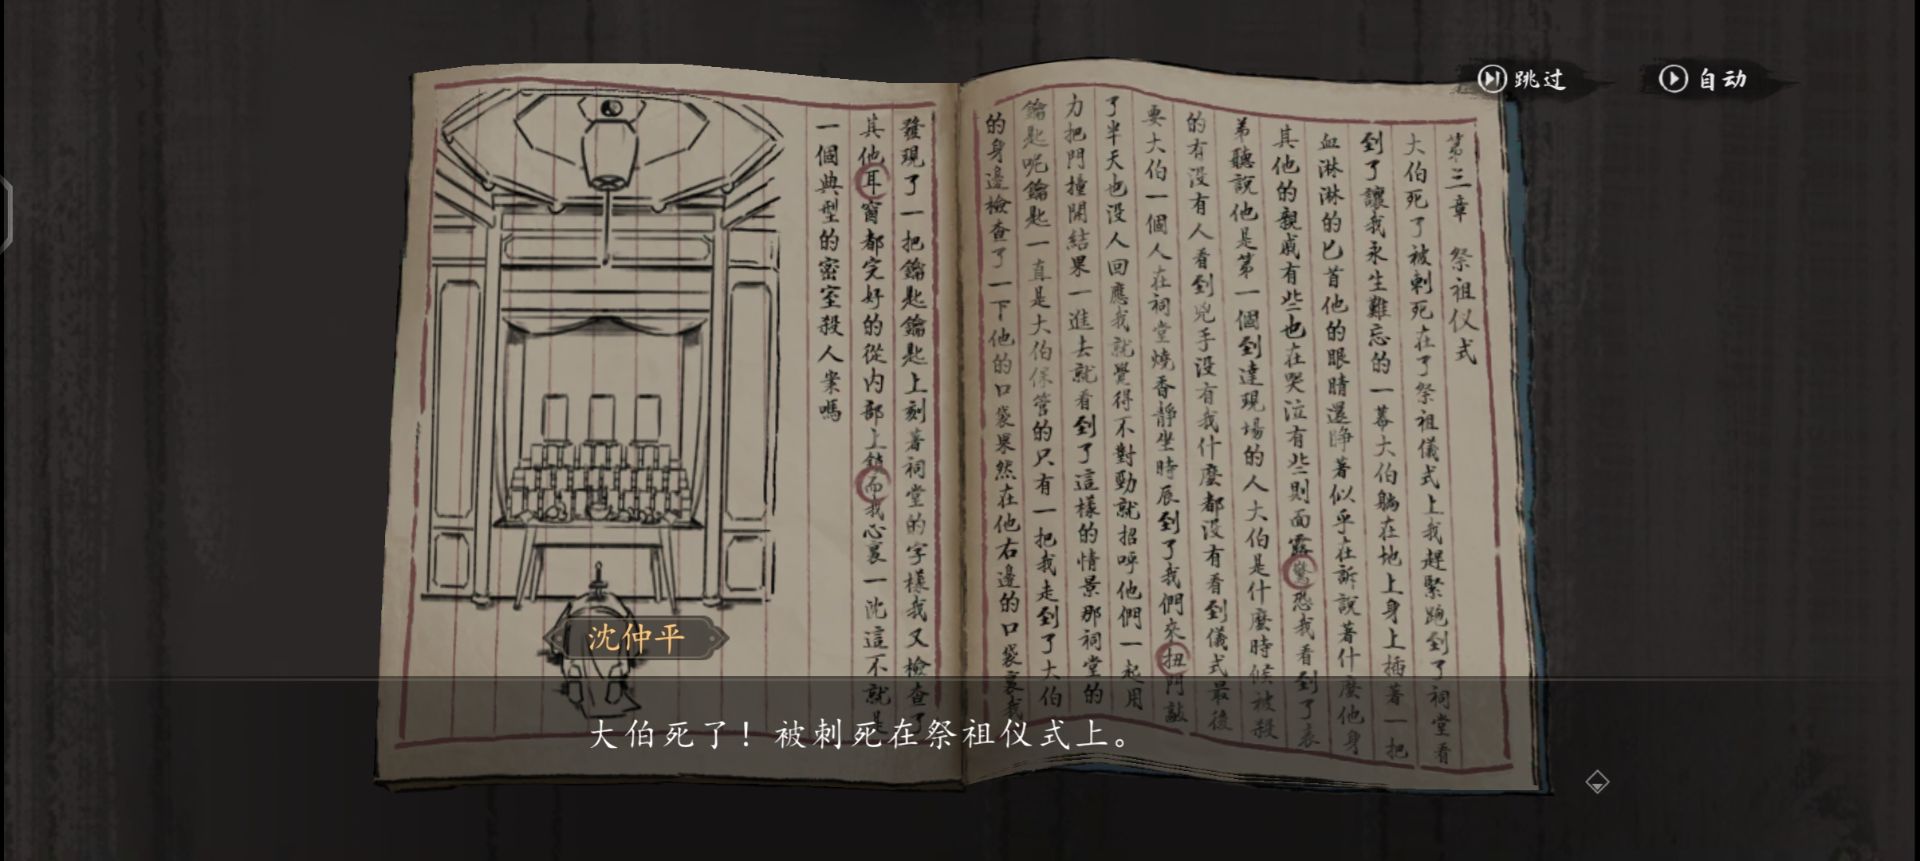 跳过
自动
第三章 祭祖仪式
大伯死了被刺死在了祭祖儀式上我趕緊跑到了祠堂看
到了讓我永生難忘的一幕大伯躺在地上身上插著一把
血淋淋的匕首他的眼睛還睜著似乎在訴說著什麼他身
其他的親戚有些也在哭泣有些則面露驚恐我看到了表
弟聽說他是第一個到達現場的人大伯是什麼時候被殺
的有没有人看到兇手没有我什麼都没有看到儀式最後
要大伯一個人在祠堂燒香靜坐時辰到了我們來扭門敲
了半天也没人回應我就覺得不對勁就招呼他們一起用
力把門撞開結果一進去就看到了這樣的情景那祠堂的
鑰匙呢鑰匙一直是大伯保管的只有一把我走到了大伯
的身邊檢查了一下他的口袋果然在他右邊的口袋裏我
發現了一把鑰匙鑰匙上刻著祠堂的字樣我又檢查了
其他耳窗都完好的從內部上鎖而我心裏一沈這不就是
一個典型的密室殺人案嗎
沈仲平
大伯死了！被刺死在祭祖仪式上。